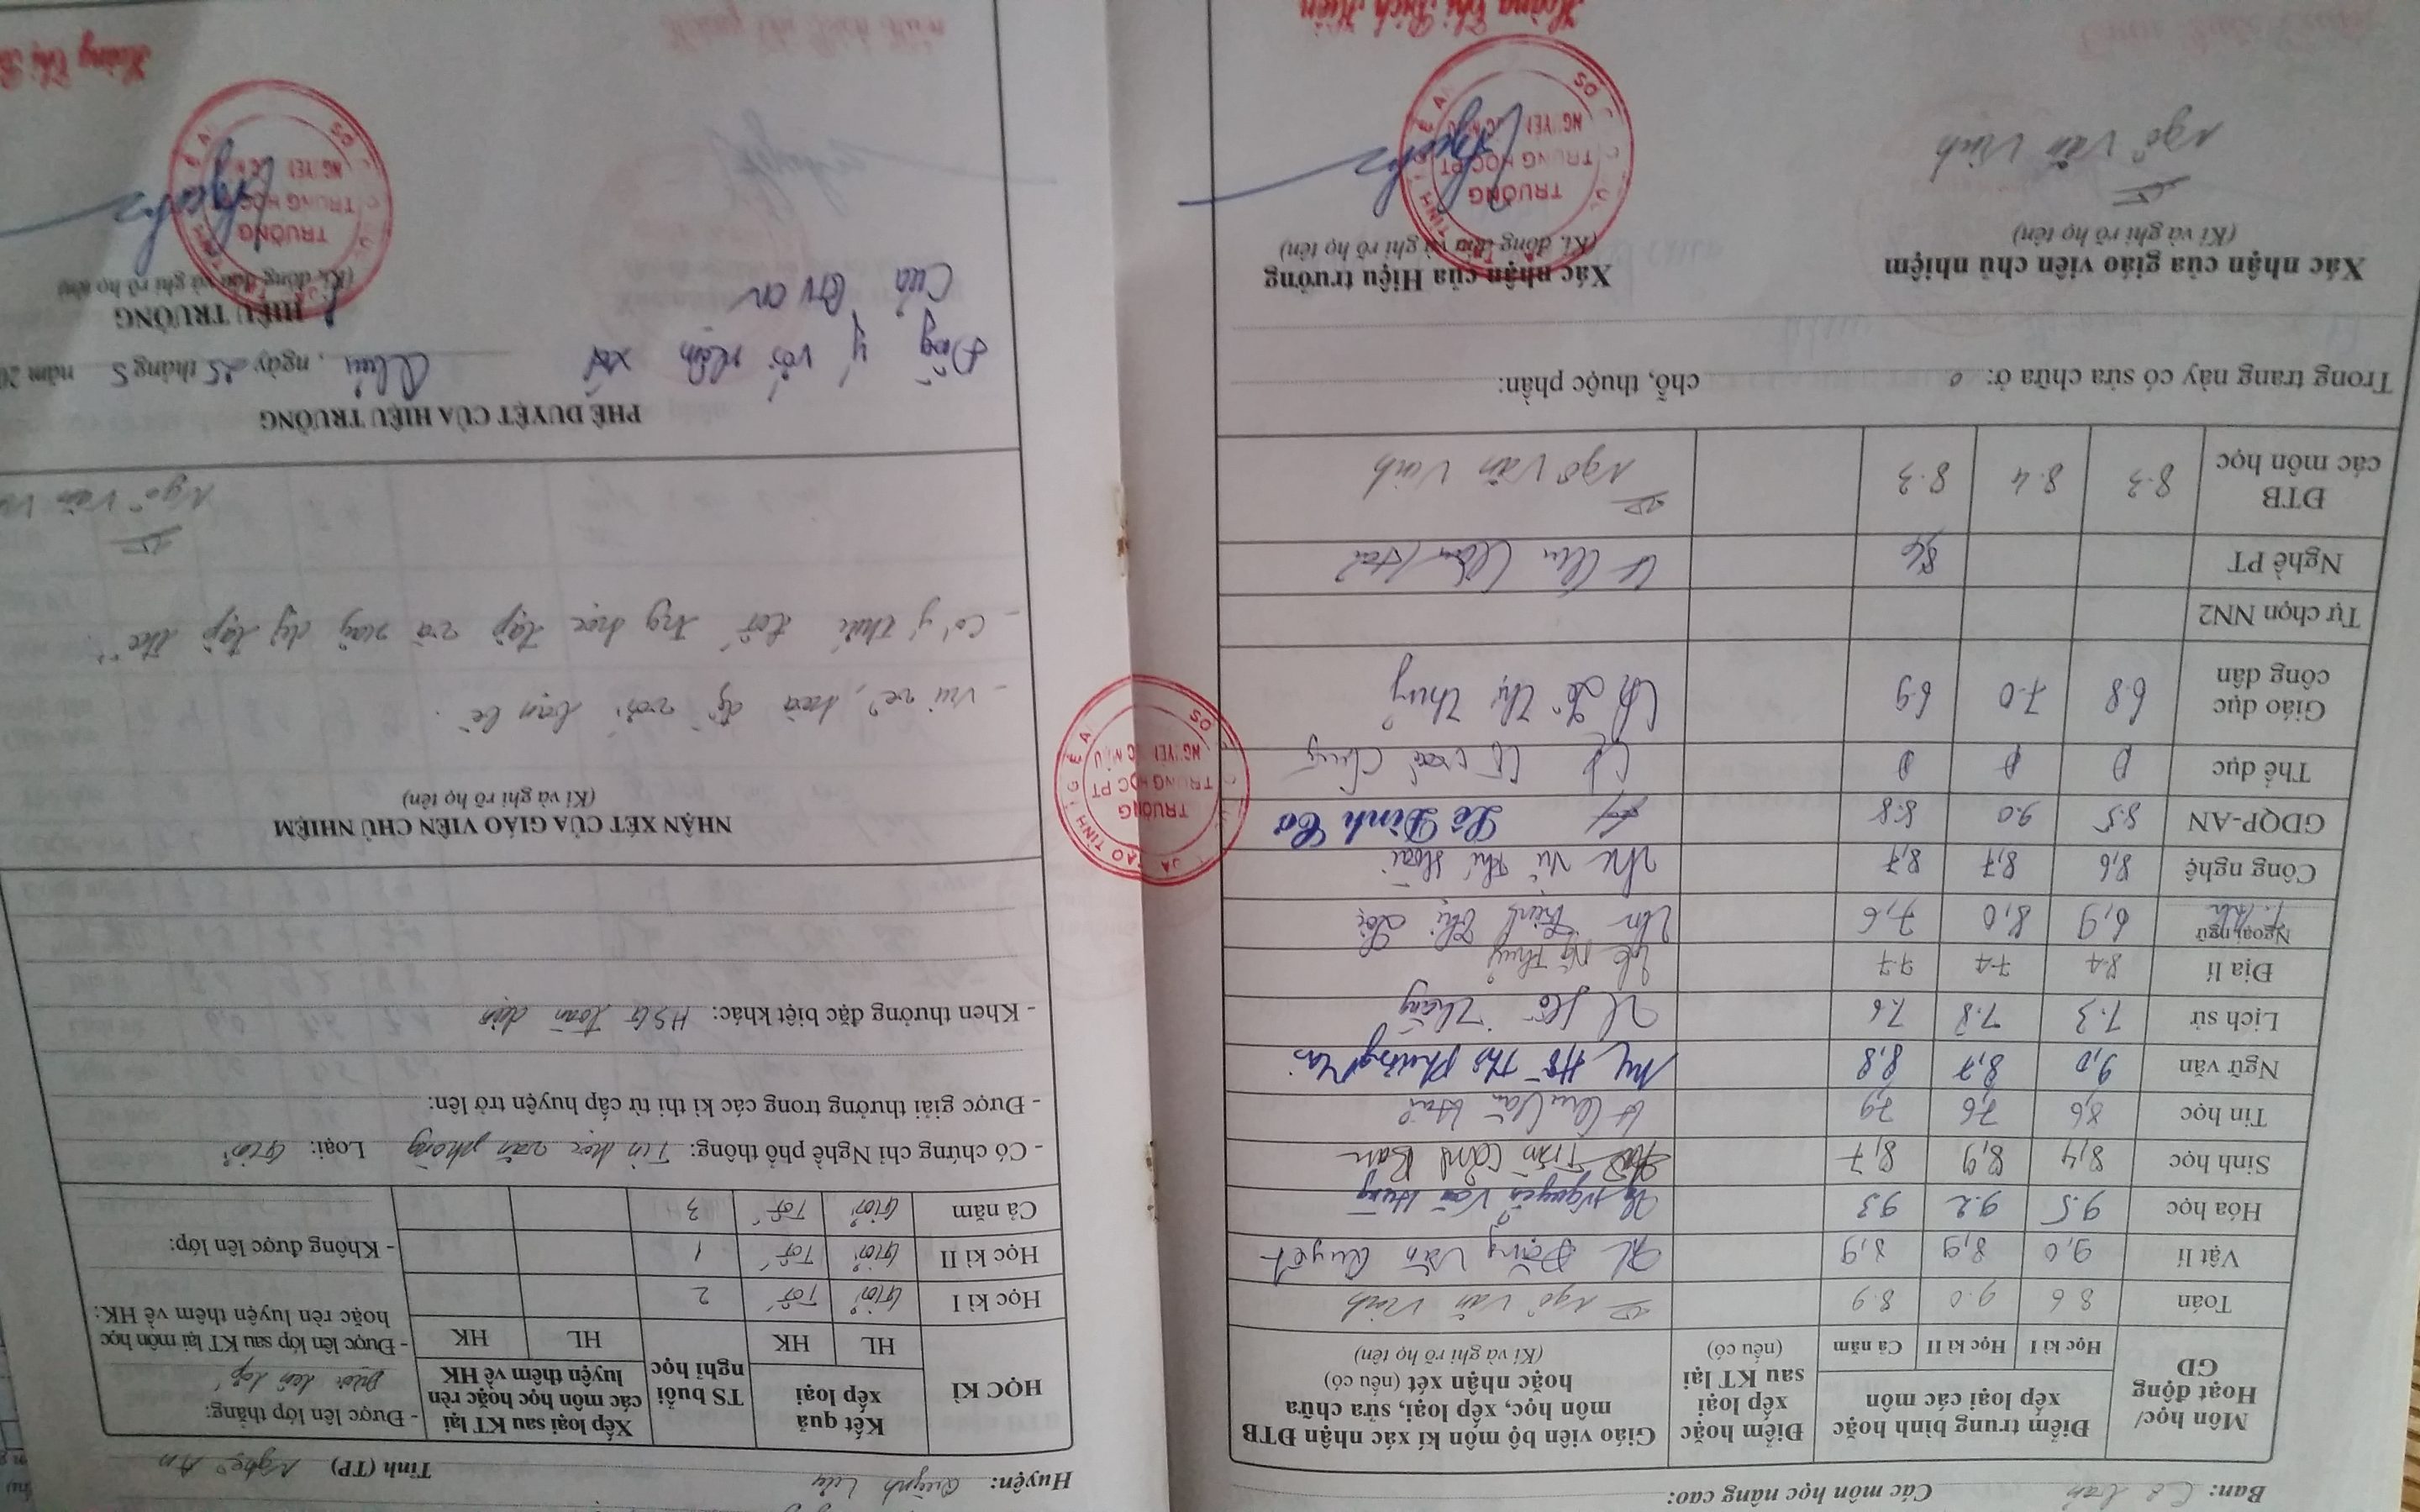 Ban: Cơ bản Các môn học nâng cao:
Môn học/ Hoạt động GD | Điểm trung bình hoặc xếp loại các môn | Điểm hoặc xếp loại sau KT lại (nếu có) | Giáo viên bộ môn kí xác nhận ĐTB môn học, xếp loại, sửa chữa hoặc nhận xét (nếu có) (Kí và ghi rõ họ tên)
Học kì I | Học kì II | Cả năm
Toán 8.6 9.0 8.9 Ngô Văn Vinh
Vật lí 9,0 8,9 8,9 Đặng Văn Quyết
Hóa học 9.5 9.2 9.3 Nguyễn Văn Hùng
Sinh học 8,4 8,9 8,7 Trần Cảnh Ban
Tin học 8,6 7,6 7,9 Chu Văn Hai
Ngữ văn 9,0 8,7 8,8 Hồ Thị Phương Lan
Lịch sử 7.3 7.8 7.6 Hồ Thắng
Địa lí 8.4 7.4 7.7 Ng Thuỷ
Ngoại ngữ T.Anh 6,9 8,0 7,6 Trịnh Thị Lợi
Công nghệ 8,6 8,7 8,7 Vũ Thị Hoài
GDQP-AN 8.5 9.0 8.8 Lê Đình Cơ
Thể dục Đ Đ Đ
Giáo dục công dân 6.8 7.0 6.9 Lê Thị Thuỷ
Tự chọn NN2
Nghề PT 8,6 Chu Văn Hai
ĐTB các môn học 8.3 8.4 8.3 Ngô Văn Vinh
Trong trang này có sửa chữa ở: 0 chỗ, thuộc phần:
Xác nhận của giáo viên chủ nhiệm
(Kí và ghi rõ họ tên)
Ngô Văn Vinh
Xác nhận của Hiệu trưởng
(Kí, đóng dấu và ghi rõ họ tên)
TRƯỜNG
TRUNG HỌC PT
Hoàng Thị Bích Hiền
Huyện: Quỳnh Lưu Tỉnh (TP) Nghệ An
HỌC KÌ | Kết quả xếp loại | TS buổi nghỉ học | Xếp loại sau KT lại các môn học hoặc rèn luyện thêm về HK
HL | HK | HL | HK
Học kì I Giỏi Tốt 2
Học kì II Giỏi Tốt 1
Cả năm Giỏi Tốt 3
- Được lên lớp thẳng:
Được lên lớp
- Được lên lớp sau KT lại môn học
hoặc rèn luyện thêm về HK:
- Không được lên lớp:
- Có chứng chỉ Nghề phổ thông: Tin học văn phòng Loại: Giỏi
- Được giải thưởng trong các kì thi từ cấp huyện trở lên:
- Khen thưởng đặc biệt khác: HSG toàn diện
NHẬN XÉT CỦA GIÁO VIÊN CHỦ NHIỆM
(Kí và ghi rõ họ tên)
- Vui vẻ, hoà đg với bạn bè.
- Có ý thức tốt trg học tập và xây dg tập thể.
Ngô Văn
PHÊ DUYỆT CỦA HIỆU TRƯỞNG
Đồng ý với nhận xét
của GVCN
, ngày 25 tháng 5 năm 20
HIỆU TRƯỞNG
(Kí, đóng dấu và ghi rõ họ tên)
TRƯỜNG
TRUNG HỌC PT
Hoàng Thị
TRƯỜNG
TRUNG HỌC PT